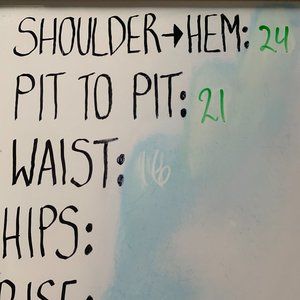 SHOULDER→HEM: 24
PIT TO PIT: 21
WAIST: 16
HIPS:
RISE: